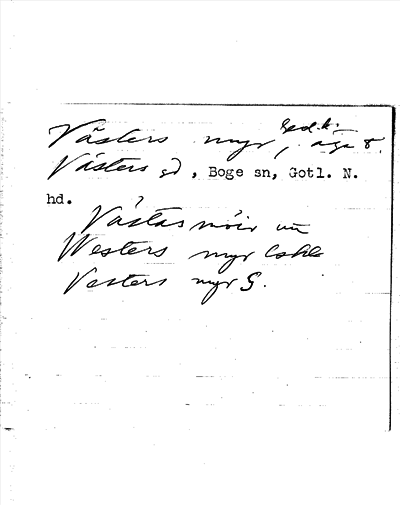 Västers myr, äga t.
Västers gd, Boge sn, Gotl. N.
hd.
Västasmöir
Westers myr
Vesters myr G.